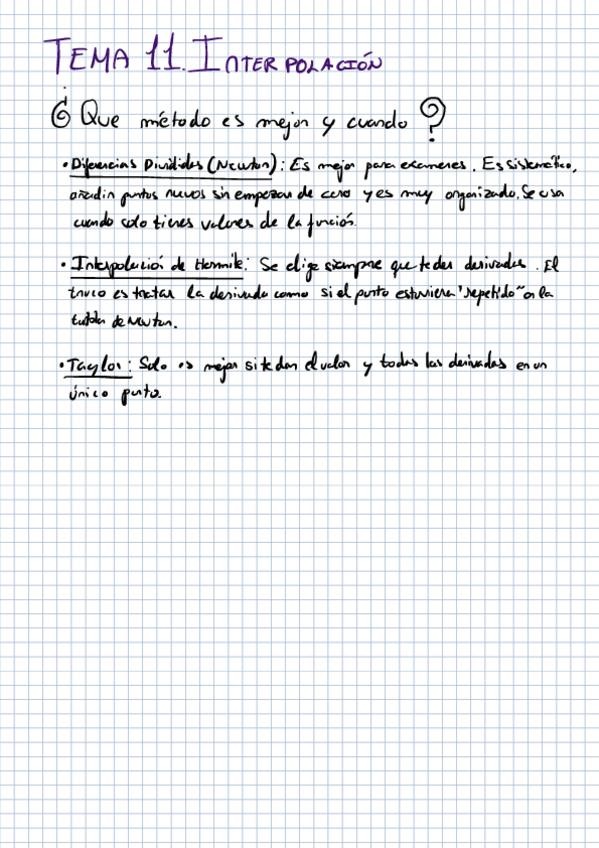 TEMA 11. INTERPOLACIÓN
¿Que método es mejor y cuando?
• Diferencias Divididas (Newton): Es mejor para examenes. Es sistemático,
añadir puntos nuevos sin empezar de cero y es muy organizado. Se usa
cuando solo tienes valores de la función.
• Interpolación de Hermite: Se elige siempre que te den derivadas. El
truco es tratar la derivada como si el punto estuviera "repetido" en la
tabla de Newton.
• Taylor: Solo es mejor si te dan el valor y todas las derivadas en un
único punto.